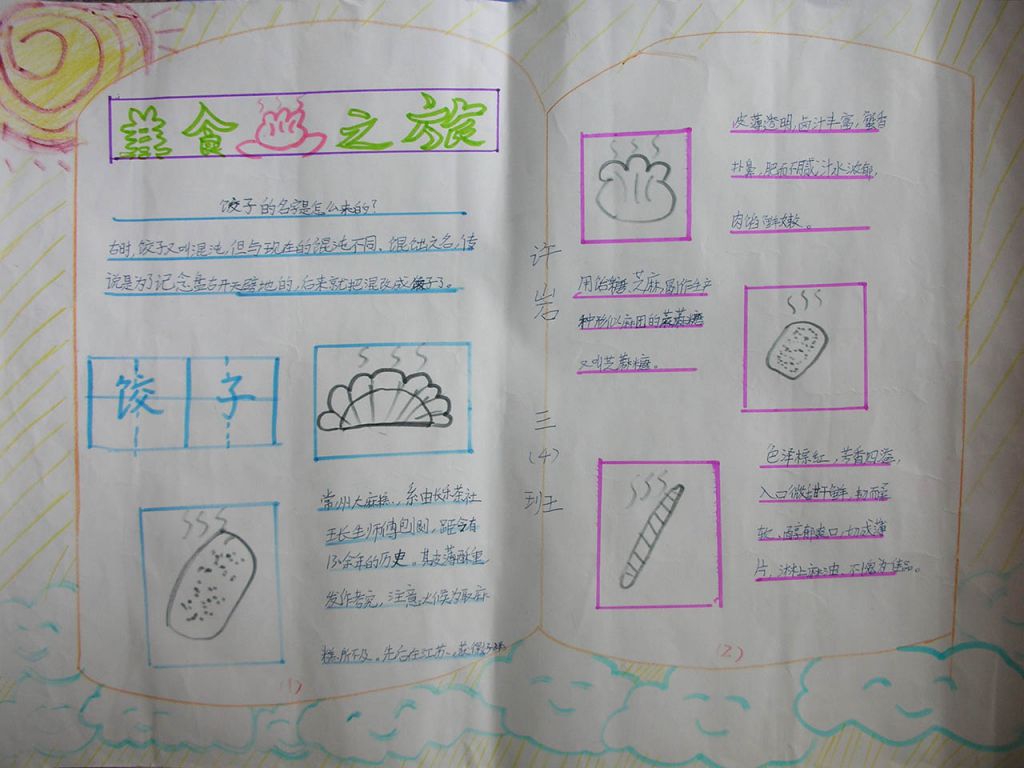 美食之旅
饺子的名字是怎么来的?
古时,饺子又叫混沌,但与现在的馄饨不同,馄饨之名,传
说是为了记念盘古开天辟地的,后来就把混改成饺子了。
饺子
常州大麻糕、系由长乐茶社
王长生师傅创制,距今有
130余年的历史。其皮薄酥重
发作考究,注意火候为取麻
糕所不及。先后在江苏
(1)
许岩
三(4)班
皮薄透明,卤汁丰富,蟹香
扑鼻,肥而不腻,汁水浓郁,
肉馅鲜嫩。
用饴糖、芝麻,制作生产
种形似麻团的
又叫芝麻糖。
色泽棕红,芳香四溢,
入口微甜鲜,韧而
软、醇郁爽口,切成薄
片,淋上麻油,
(2)